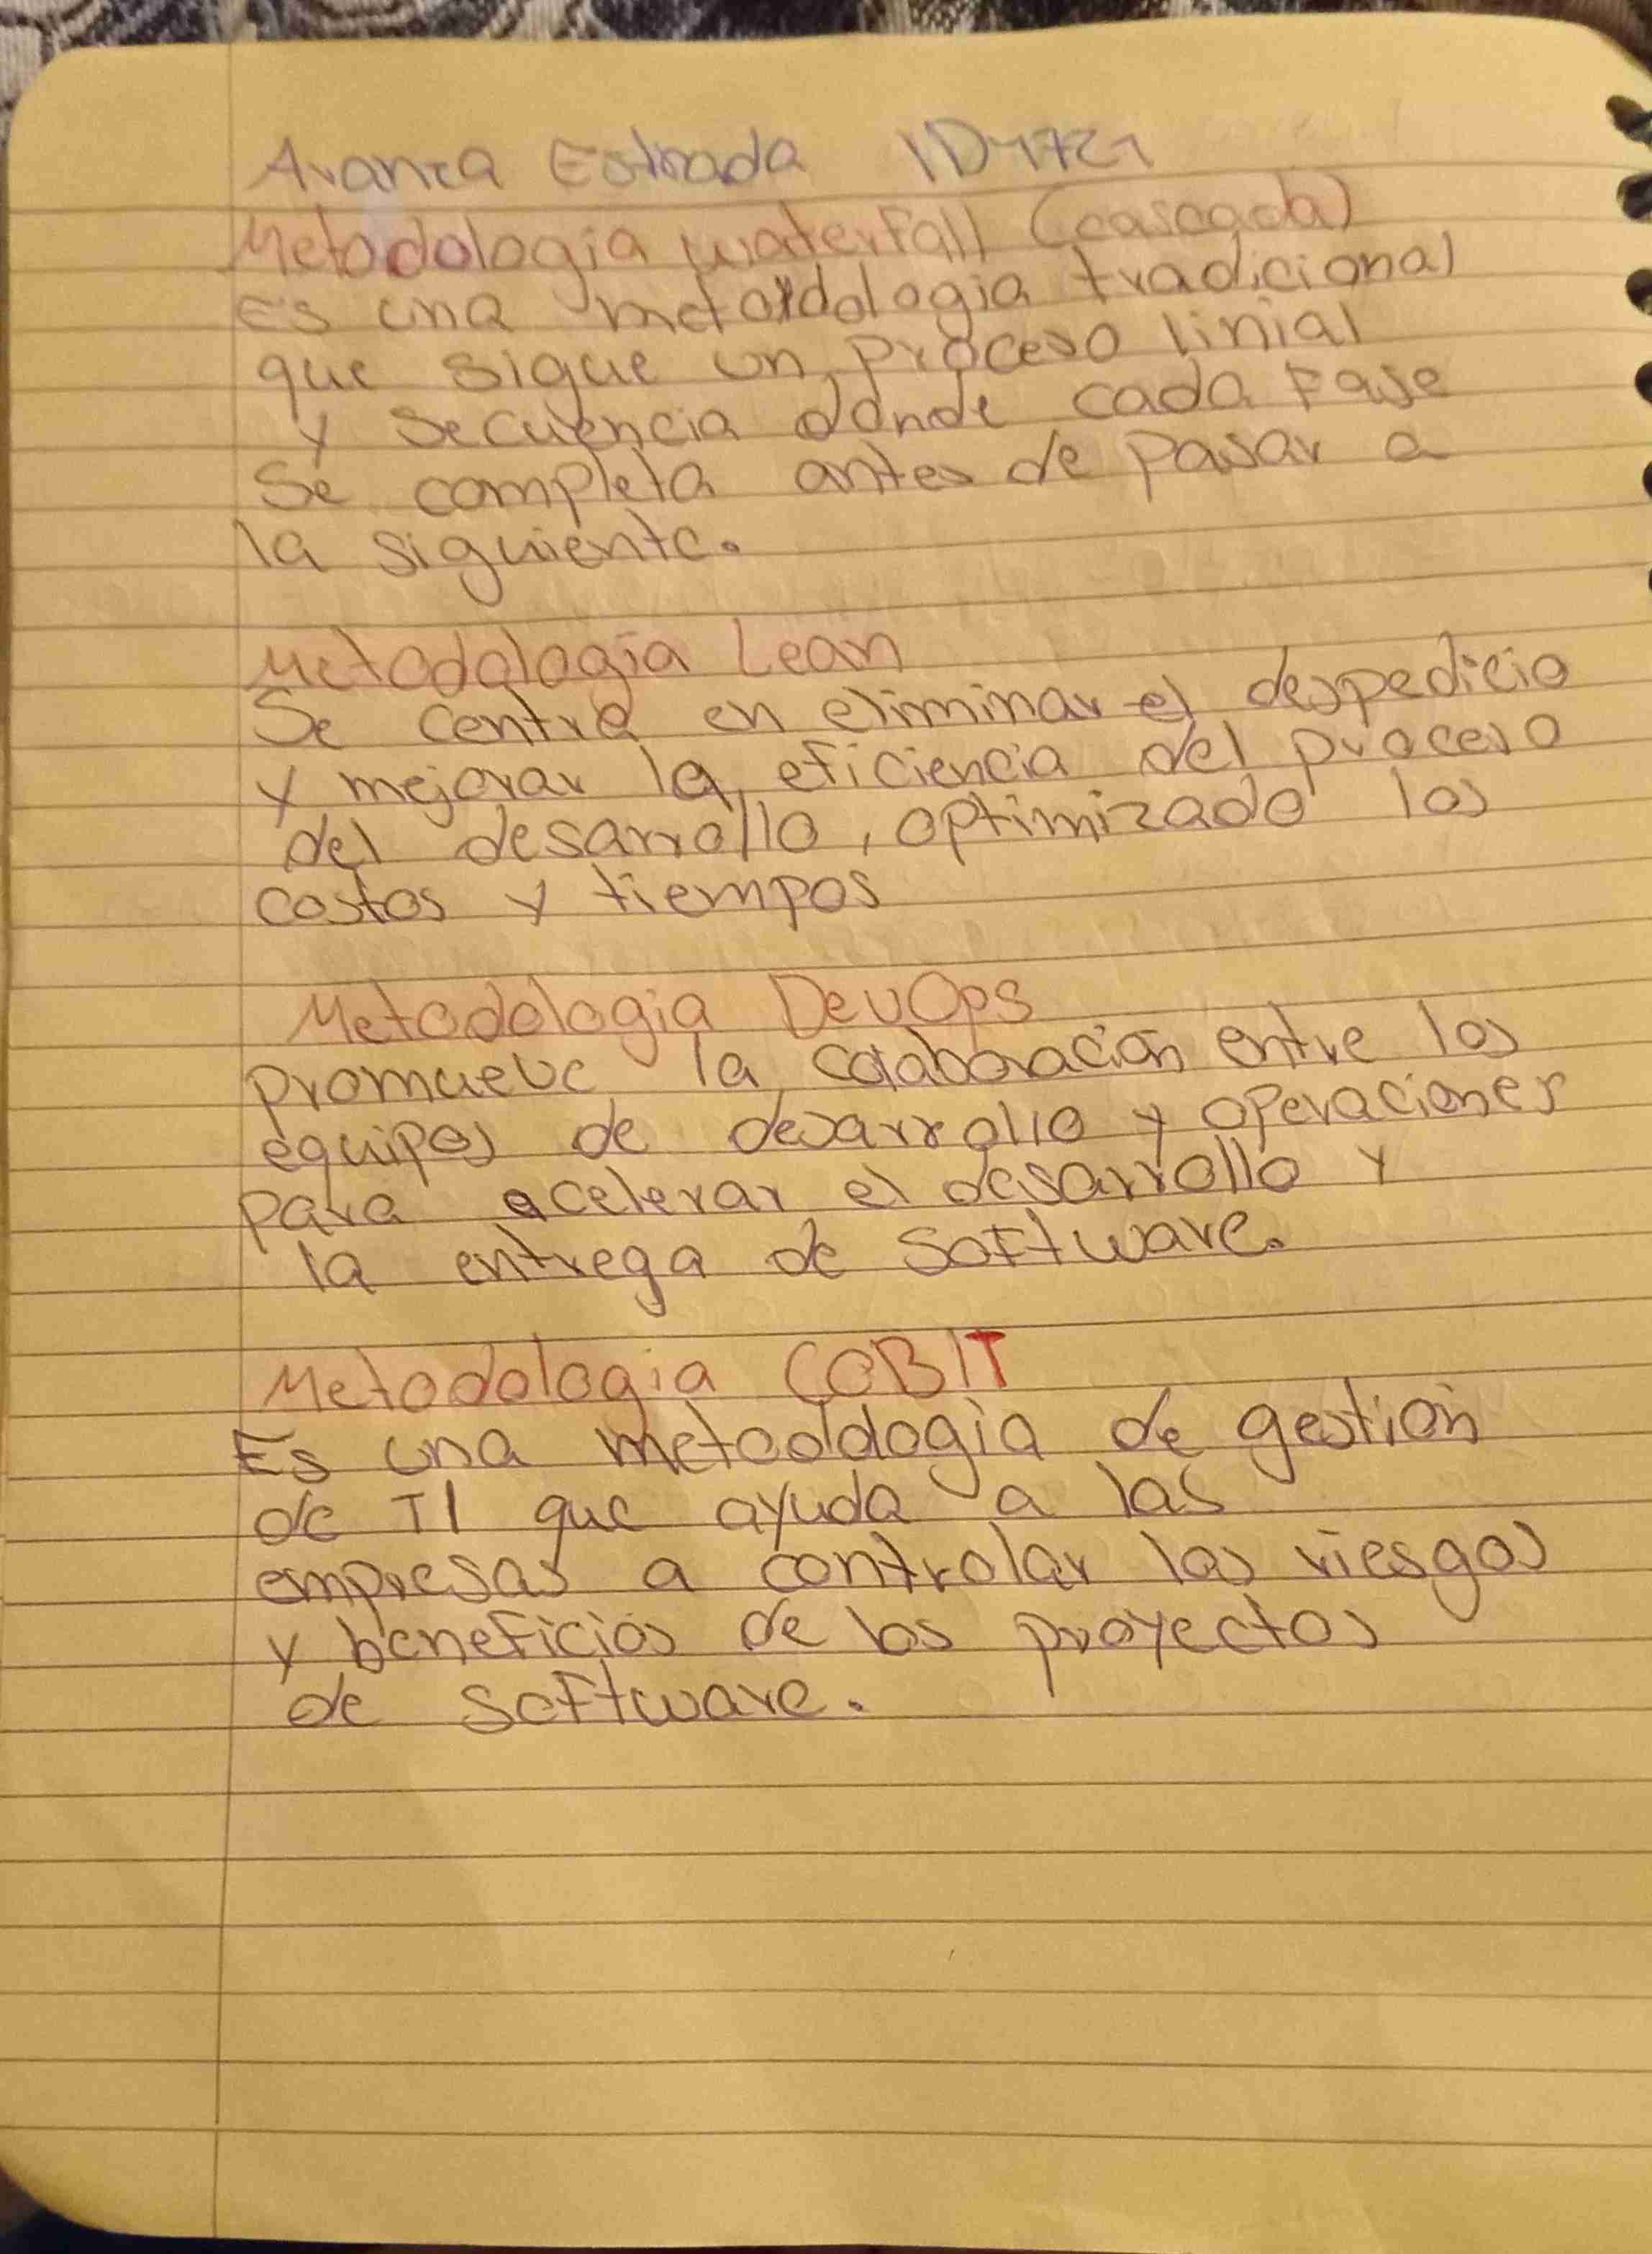 Estrada
Metodologia waterfall (cascada)
Es una metodologia tradicional
que sigue un proceso linial
y secuencia donde cada fase
se completa antes de pasar a
la siguiente.
Metodologia Lean
Se centra en eliminar el despedicio
y mejorar la eficiencia del proceso
del desarrollo, optimizado los
costos y tiempos
Metodologia DevOps
promueve la colaboración entre los
equipos de desarrollo y operaciones
para acelerar el desarrollo y
la entrega de software.
Metodologia COBIT
Es una metodologia de gestión
de TI que ayuda a las
empresas a controlar los riesgos
y beneficios de los proyectos
de software.